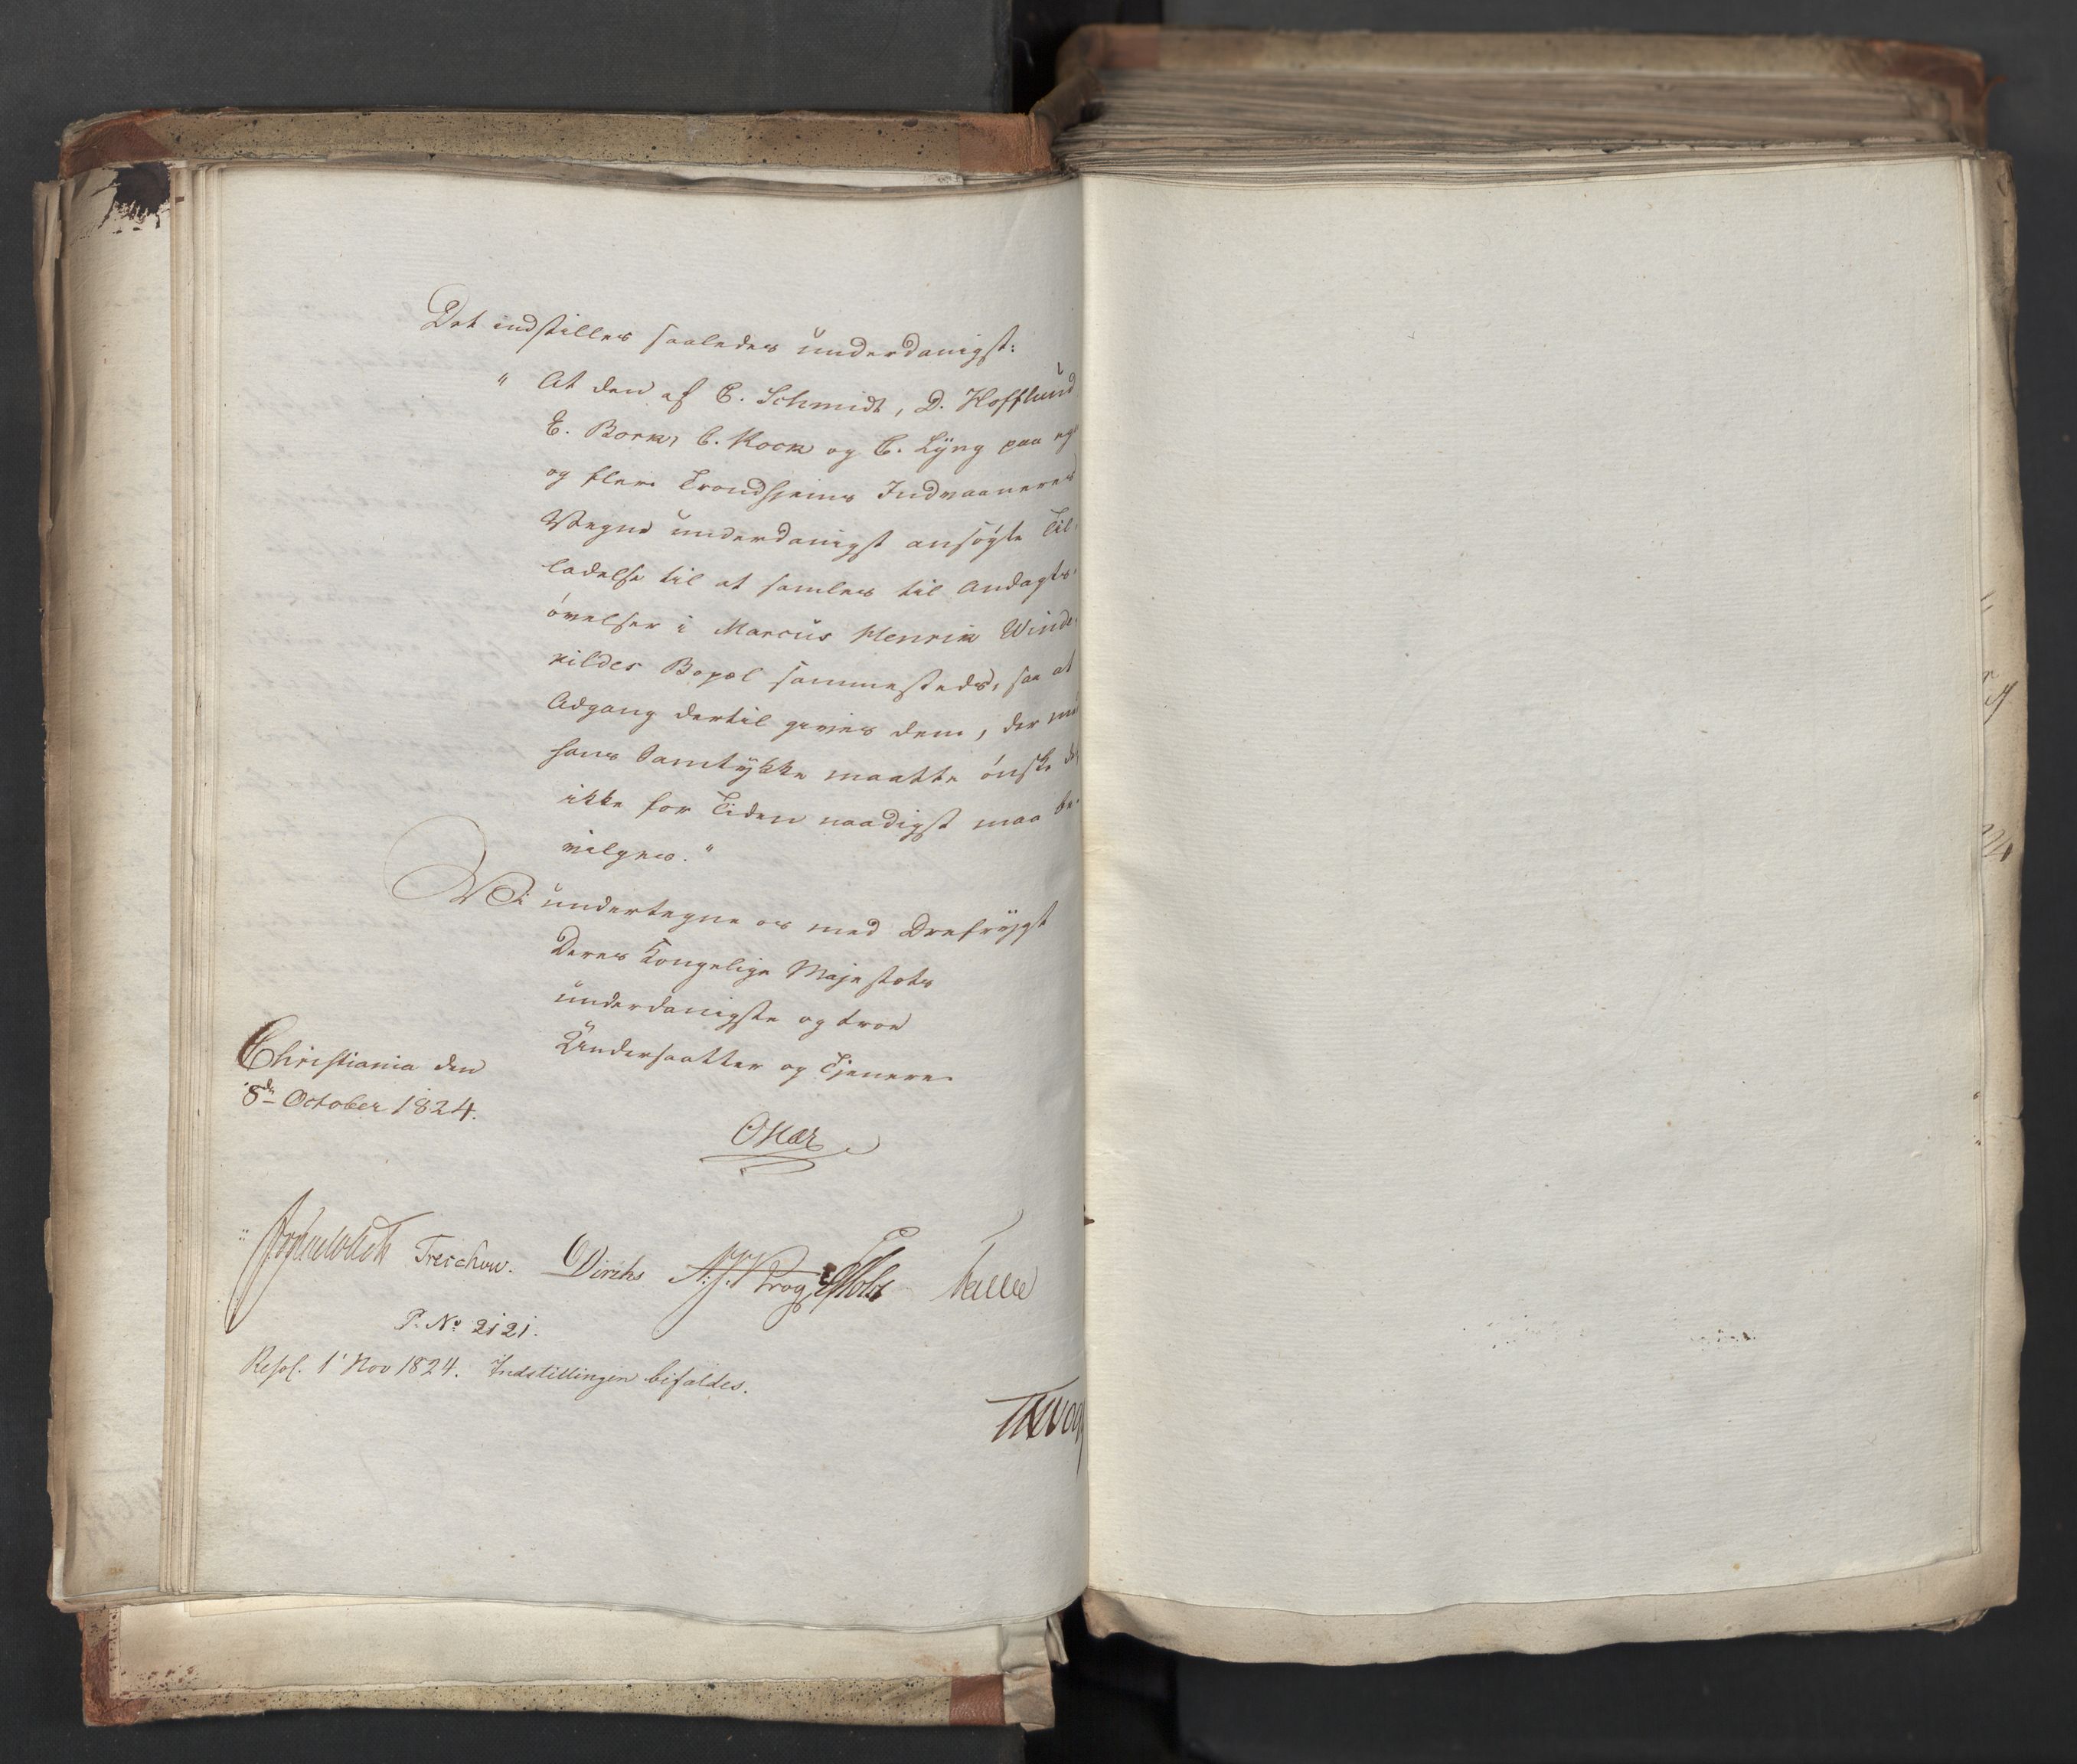 Det indstilles saaledes underdanigst:
" At den af C. Schmidt, D. Hofflund
E. Bork, C. Kock og C. Lÿng paa egne
og flere Trondhjems Indvaaneres
Vegne underdanigst ansøgte Til-
ladelse til at samles til Andagts-
øvelser i Marcus Henrik Winds-
kildes Bopæl sammesteds, saa at
Adgang dertil gives dem, der med
hans Samtÿkke maatte ønske det,
ikke for Tiden naadigst maa be-
vilges."
Vi undertegne os med Dÿbefrÿgt
Deres Kongelige Majestæts
underdanigste og troe
Undersaatter og Tjenere
Christiania den
8de October 1824.
Oscar
Treschow. Diriks A. J. Krog Holst Falbe
P. No 2121.
Resol. 1' Nov 1824. Indstillingen bifaldes.